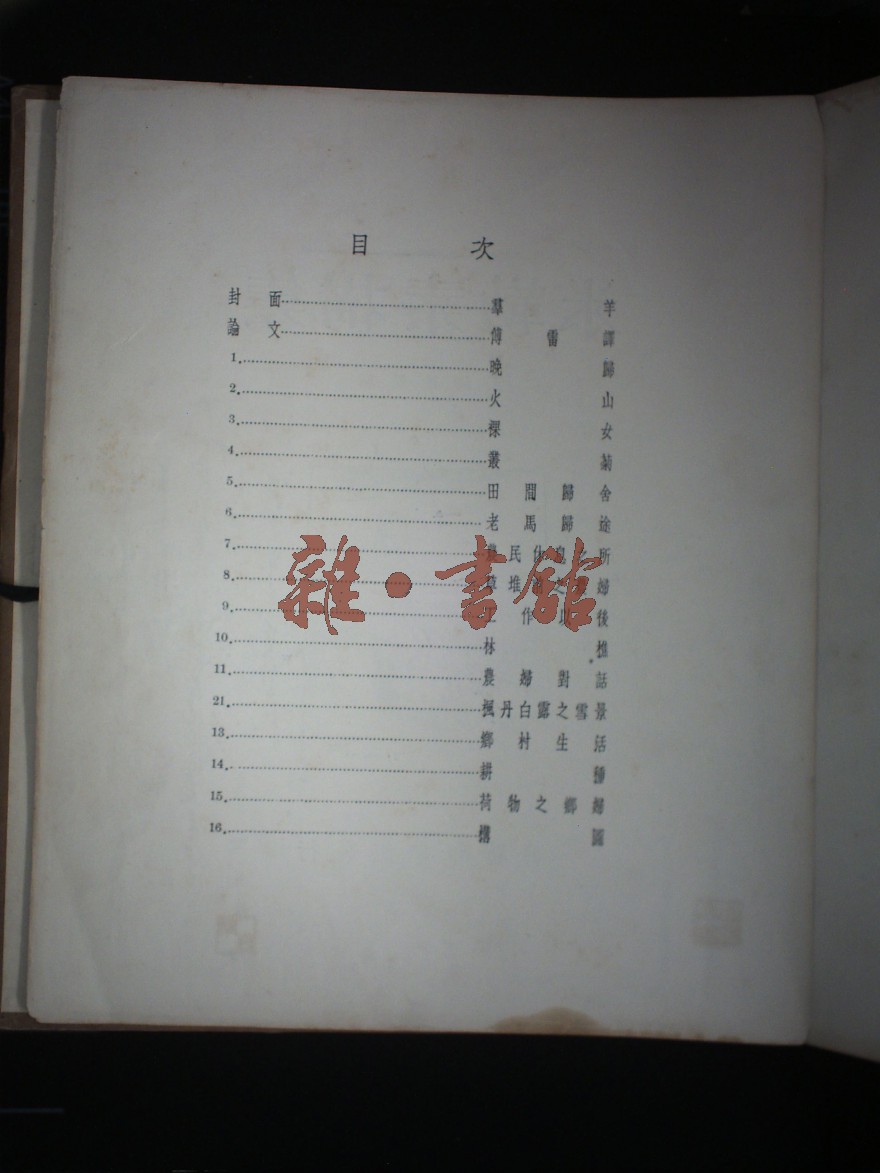 目次
封面……羣羊
論文……傅雷譯
1.……晚歸
2.……火山
3.……裸女
4.……叢菊
5.……田間歸舍
6.……老馬歸途
7.……民休息之所
8.……草堆婦
9.……工作以後
10.……林樵
11.……農婦對話
21.……楓丹白露之雪景
13.……鄉村生活
14.……耕種
15.……荷物之鄉婦
16.……構圖
雜·書館